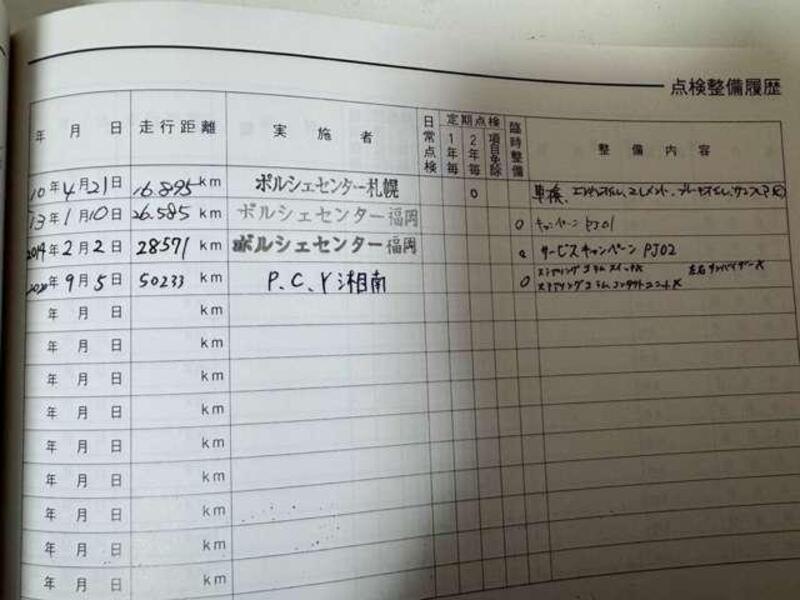 点検整備履歴
年 月 日 走行距離 実施者 日常点検 定期点検 1年毎 2年毎 項目免除 臨時整備 整備内容
10年4月21日 16.895km ポルシェセンター札幌 o 車検、エンジンオイル、エレメント、ブレーキオイル、
13年1月10日 26.585km ポルシェセンター福岡 o キャンペーン PJ01
2014年2月2日 28571km ポルシェセンター福岡 o サービスキャンペーン PJ02
年9月5日 50233km P.C.Y湘南 o ステアリングコラムスイッチ 左右サンバイザー
ステアリングコラムコンタクトユニット
年 月 日 km
年 月 日 km
年 月 日 km
年 月 日 km
年 月 日 km
年 月 日 km
年 月 日 km
年 月 日 km
年 月 日 km